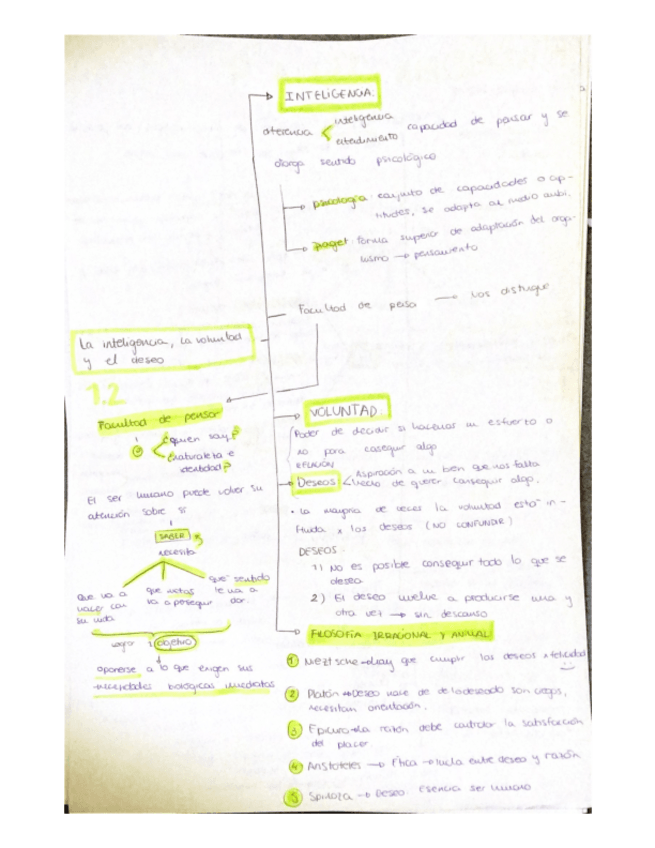 INTELIGENCIA.
diferencia < inteligencia
entendimiento
capacidad de pensar y se
segundo psicológico
→ psicología: conjunto de capacidades o ap-
titudes, se adapta al medio ambi.
→ piaget: forma superior de adaptación del orga-
nismo → pensamiento
Facultad de pensa → Nos distingue
La inteligencia, la voluntad
y el deseo
1.2
Facultad de pensar
¿quien soy?
¿naturaleza e
identidad?
El ser humano puede volver su
atención sobre si
SABER
necesita
que va a
hacer con
su vida
que metas
va a perseguir
que sentido
le va a
dar.
mayor objetivo
oponerse a lo que exigen sus
necesidades biológicas inmediatas
VOLUNTAD
Poder de decidir si hacemos un esfuerzo o
no para conseguir algo
RELACIÓN
Deseos: < Aspiración a un bien que nos falta
Hecho de querer conseguir algo.
• La mayoria de veces la voluntad está in-
fluida x los deseos (NO CONFUNDIR)
DESEOS:
1) No es posible conseguir todo lo que se
desea
2) El deseo vuelve a producirse una y
otra vez → sin descanso
FILOSOFÍA IRRACIONAL Y ANIMAL
1 Neztsche → hay que cumplir los deseos x felicidad
2 Platón → Deseo nace de lo deseado son ciegos,
necesitan orientación.
3 Epicuro → La razón debe controlar la satisfacción
del placer
4 Aristóteles → Ética → lucha entre deseo y razón
5 Spinoza → Deseo: Esencia ser humano